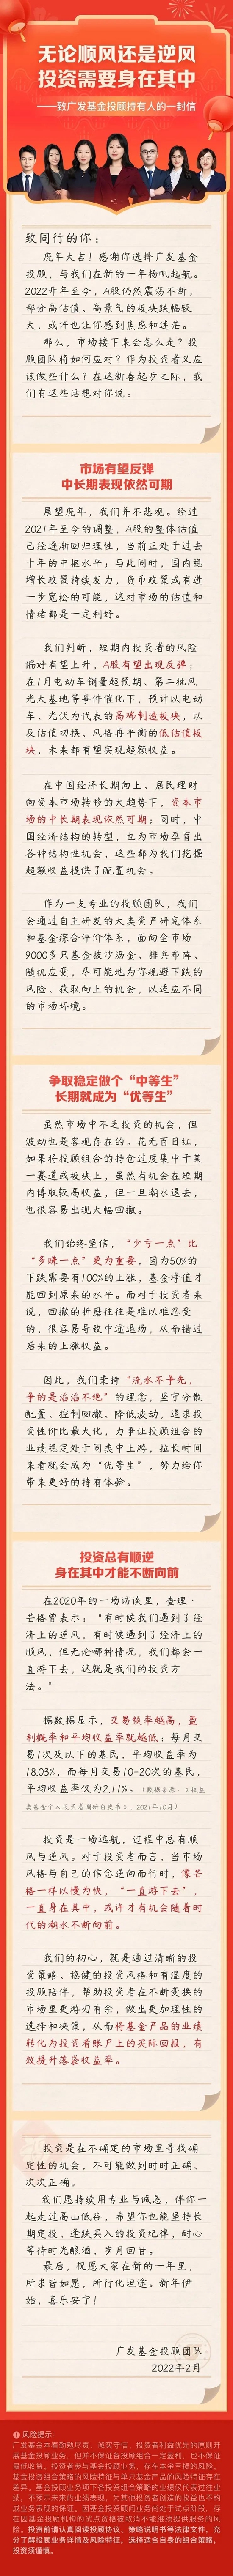 无论顺风还是逆风
投资需要身在其中
——致广发基金投顾持有人的一封信
致同行的你：
虎年大吉！感谢你选择广发基金
投顾，与我们在新的一年扬帆起航。
2022开年至今，A股仍然震荡不断，
部分高估值、高景气的板块跌幅较
大，或许也让你感到焦虑和迷茫。
那么，市场接下来会怎么走？投
顾团队将如何应对？作为投资者又应
该做些什么？在这新春起步之际，我
们有这些话想对你说：
市场有望反弹
中长期表现依然可期
展望虎年，我们并不悲观。经过
2021年至今的调整，A股的整体估值
已经逐渐回归理性，当前正处于过去
十年的中枢水平；与此同时，国内稳
增长政策持续发力，货币政策或有进
一步宽松的可能，这对市场的估值和
情绪都是一定利好。
我们判断，短期内投资者的风险
偏好有望上升，A股有望出现反弹；
在1月电动车销量超预期、第二批风
光大基地等事件催化下，预计以电动
车、光伏为代表的高端制造板块，以
及估值切换、风格再平衡的低估值板
块，未来都有望实现超额收益。
在中国经济长期向上、居民理财
向资本市场转移的大趋势下，资本市
场的中长期表现依然可期；同时，中
国经济结构的转型，也为市场孕育出
各种结构性机会，这些都为我们挖掘
超额收益提供了配置机会。
作为一支专业的投顾团队，我们
会通过自主研发的大类资产研究体系
和基金综合评价体系，面向全市场
9000多只基金披沙沥金、排兵布阵、
随机应变，尽可能地为你规避下跌的
风险、获取向上的机会，以适应不同
的市场环境。
争取稳定做个“中等生”
长期就成为“优等生”
虽然市场中不乏投资的机会，但
波动也是客观存在的。花无百日红，
如果将投顾组合的持仓过度集中于某
一赛道或板块上，虽然有机会在短期
内博取较高收益，但一旦潮水退去，
也很容易出现大幅回撤。
我们始终坚信，“少亏一点”比
“多赚一点”更为重要，因为50%的
下跌需要有100%的上涨，基金净值才
能回到原来的水平。而对于投资者来
说，回撤的折磨往往是难以难忍受
的，很容易导致中途退场，从而错过
后来的上涨收益。
因此，我们秉持“流水不争先，
争的是滔滔不绝”的理念，坚守分散
配置、控制回撤、降低波动，追求投
资性价比最大化，力争让投顾组合的
业绩稳定处于同类中上游，拉长时间
来看就会成为“优等生”，努力给你
带来更好的持有体验。
投资总有顺逆
身在其中才能不断向前
在2020年的一场访谈里，查理·
芒格曾表示：“有时候我们遇到了经
济上的逆风，有时候遇到了经济上的
顺风，但无论哪种情况，我们都会一
直游下去，这就是我们的投资方
法。”
据数据显示，交易频率越高，盈
利概率和平均收益率就越低：每月交
易1次及以下的基民，平均收益率为
18.03%，而每月交易10-20次的基民，
平均收益率仅为2.11%。（数据来源：《权益
类基金个人投资者调研白皮书》，2021年10月）
投资是一场远航，过程中总有顺
风与逆风。对于投资者而言，当市场
风格与自己的信念逆向而行时，像芒
格一样以慢为快，“一直游下去”，
一直身在其中，或许才有机会随着时
代的潮水不断向前。
我们的初心，就是通过清晰的投
资策略、稳健的投资风格和有温度的
投顾陪伴，帮助投资者在不断变换的
市场里更游刃有余，做出更加理性的
选择和决策，从而将基金产品的业绩
转化为投资者账户上的实际回报，有
效提升落袋收益率。
投资是在不确定的市场里寻找确
定性的机会，不可能做到时时正确、
次次正确。
我们愿持续用专业与诚恳，伴你一
起走过高山低谷，希望你也能坚持长
期定投、逢跌买入的投资纪律，耐心
等待时光酿酒，岁月回甘。
最后，祝愿大家在新的一年里，
所求皆如愿，所行化坦途。新年伊
始，喜乐安宁！
广发基金投顾团队
2022年2月
风险提示：
广发基金本着勤勉尽责、诚实守信、投资者利益优先的原则开
展基金投顾业务，但并不保证各投顾组合一定盈利，也不保证
最低收益。投资者参与基金投顾业务，存在本金亏损的风险。
基金投资组合策略的风险特征与单只基金产品的风险特征存在
差异。基金投顾业务项下各投资组合策略的业绩仅代表过往业
绩，不预示未来的业绩表现，为其他投资者创造的收益也不构
成业务表现的保证。因基金投资顾问业务尚处于试点阶段，存
在因基金投顾机构的试点资格被取消不能继续提供服务的风
险。投资前请认真阅读投顾协议、策略说明书等法律文件，充
分了解投顾业务详情及风险特征，选择适合自身的组合策略，
投资须谨慎。